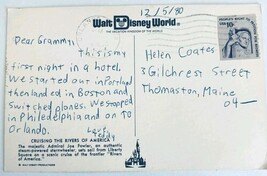 Walt Disney World®
THE VACATION KINGDOM OF THE WORLD
12/5/80
Dear Grammy,
This is my
first night in a hotel.
We started out in Portland
then landed in Boston and
switched planes. We stopped
in Philadelphia and on TO
Orlando.
Love
CRUISING THE RIVERS OF AMERICA
The majestic Admiral Joe Fowler, an authentic
steam-powered sternwheeler, sets sail from Liberty
Square on a scenic cruise of the frontier "Rivers
of America".
Helen Coates
3 Gilchrest Street
Thomaston, Maine
04—